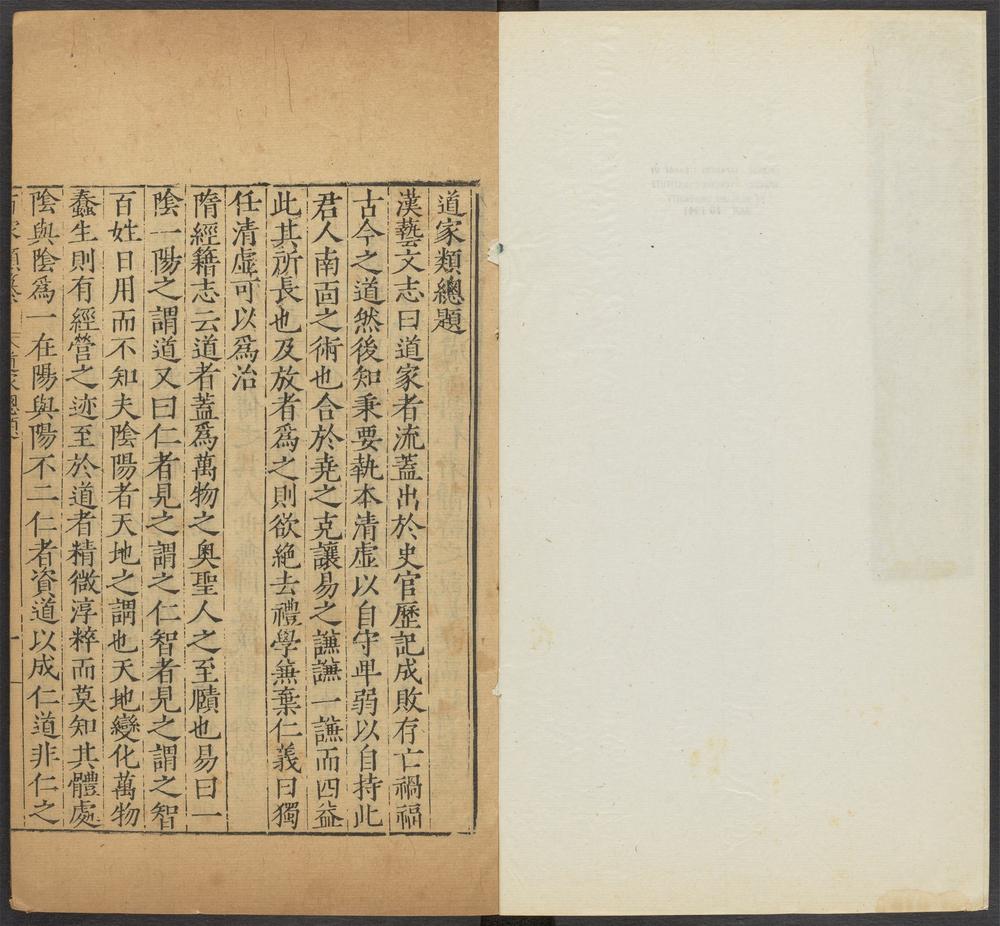 道家類總題
漢藝文志曰道家者流蓋出於史官歷記成敗存亡禍福
古今之道然後知秉要執本清虛以自守卑弱以自持此
君人南靣之術也合於堯之克讓易之謙謙一謙而四益
此其所長也及放者爲之則欲絶去禮學兼棄仁義曰獨
任清虛可以爲治
隋經籍志云道者蓋爲萬物之奧聖人之至賾也易曰一
陰一陽之謂道又曰仁者見之謂之仁智者見之謂之智
百姓日用而不知夫陰陽者天地之謂也天地變化萬物
蠢生則有經營之迹至於道者精微淳粹而莫知其體處
陰與陰爲一在陽與陽不二仁者資道以成仁道非仁之